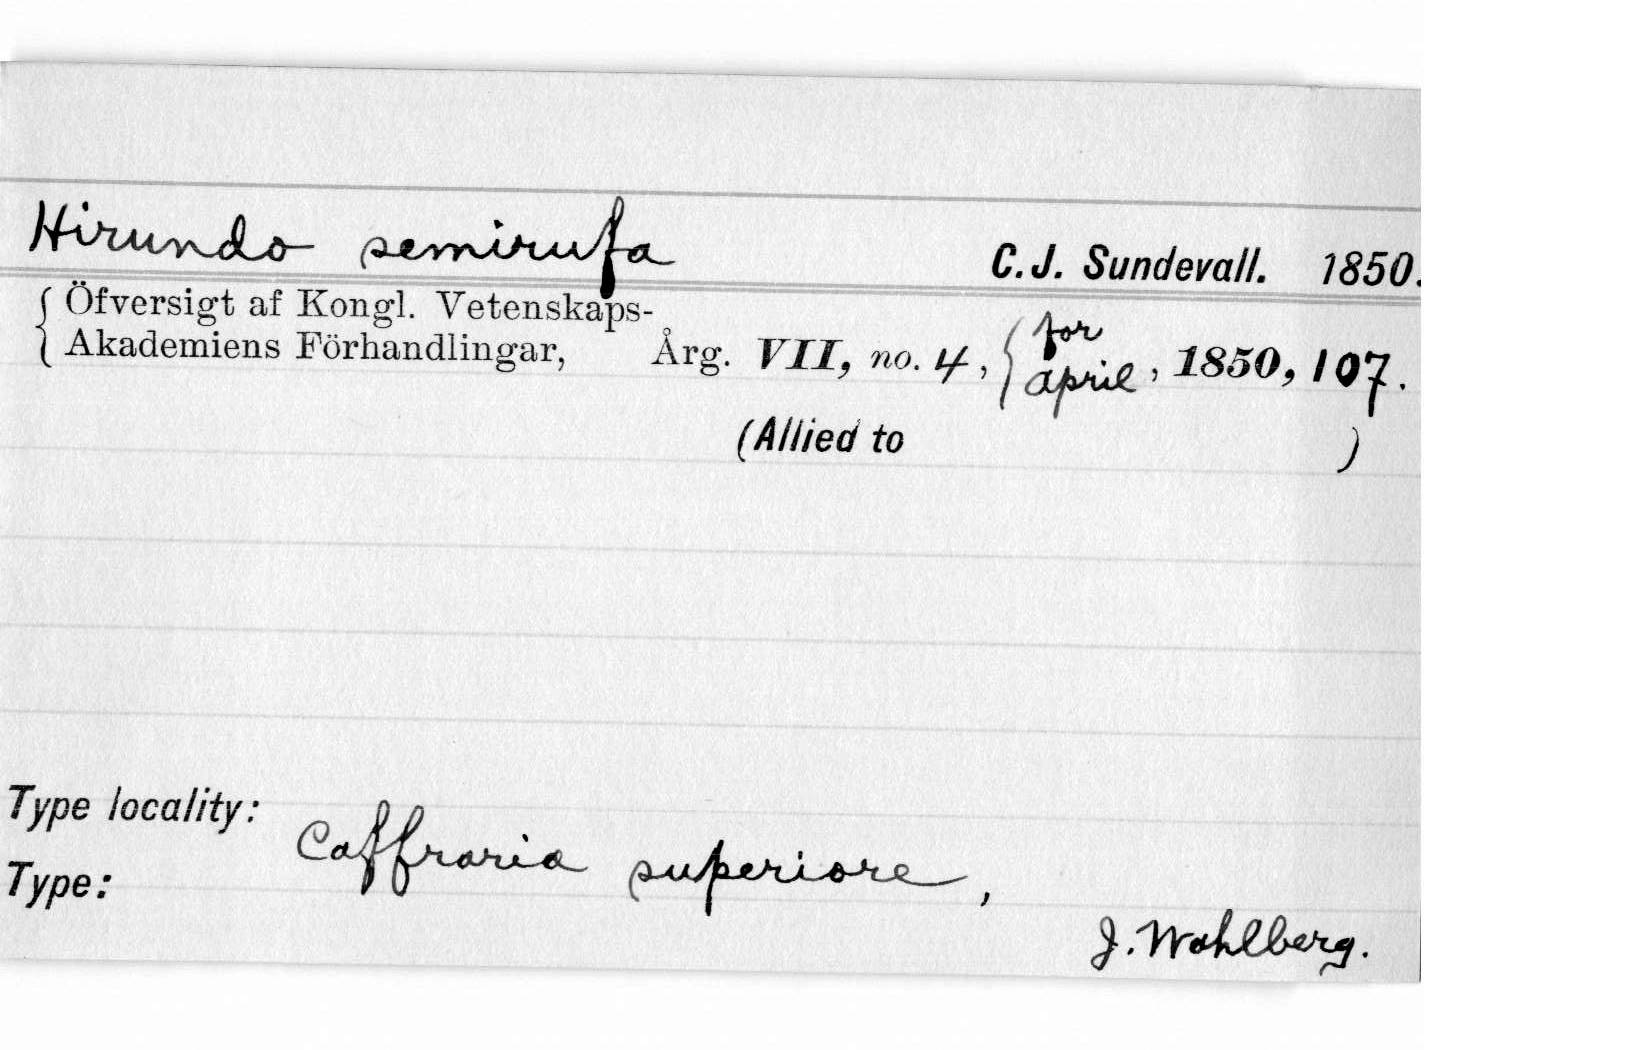 Hirundo semirufa C.J. Sundevall. 1850.
Öfversigt af Kongl. Vetenskaps-
Akademiens Förhandlingar, Årg. VII, no. 4, for april, 1850, 107.
(Allied to )
Type locality: Caffraria superiore,
Type:
J. Wahlberg.